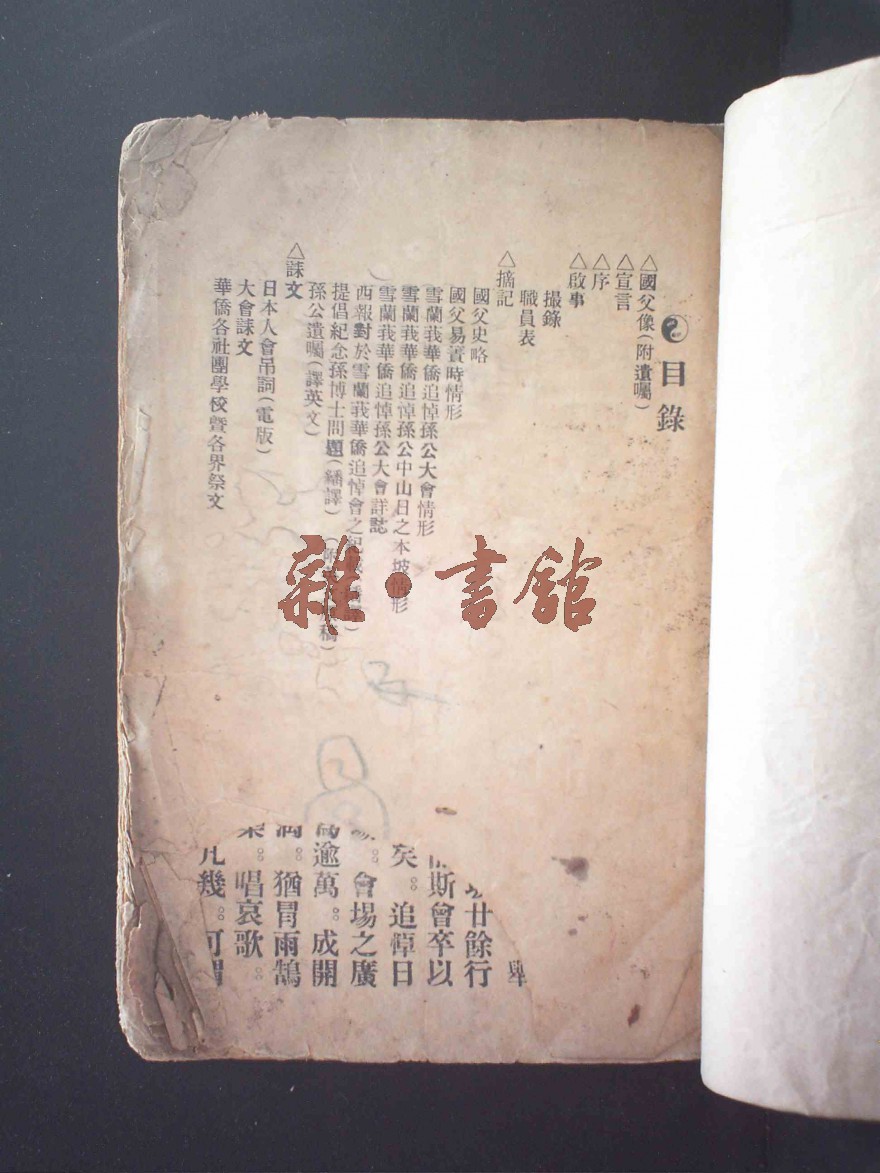 目錄
△國父像(附遺囑)
△宣言
△序
△啟事
撮錄
職員表
△摘記
國父史略
國父易簀時情形
雪蘭莪華僑追悼孫公大會情形
雪蘭莪華僑追悼孫公中山日之本坡情形
雪蘭莪華僑追悼孫公大會詳誌
西報對於雪蘭莪華僑追悼會之紀
提倡紀念孫博士問題(繙譯)
稿)
孫公遺囑(譯英文)
△誄文
日本人會吊詞(電版)
大會誄文
華僑各社團學校暨各界祭文
廿餘行
斯曾卒以
矣。追悼日
。會場之廣
逾萬。成開
。猶冒雨鵠
。唱哀歌。
凡幾。可謂
雜·書館